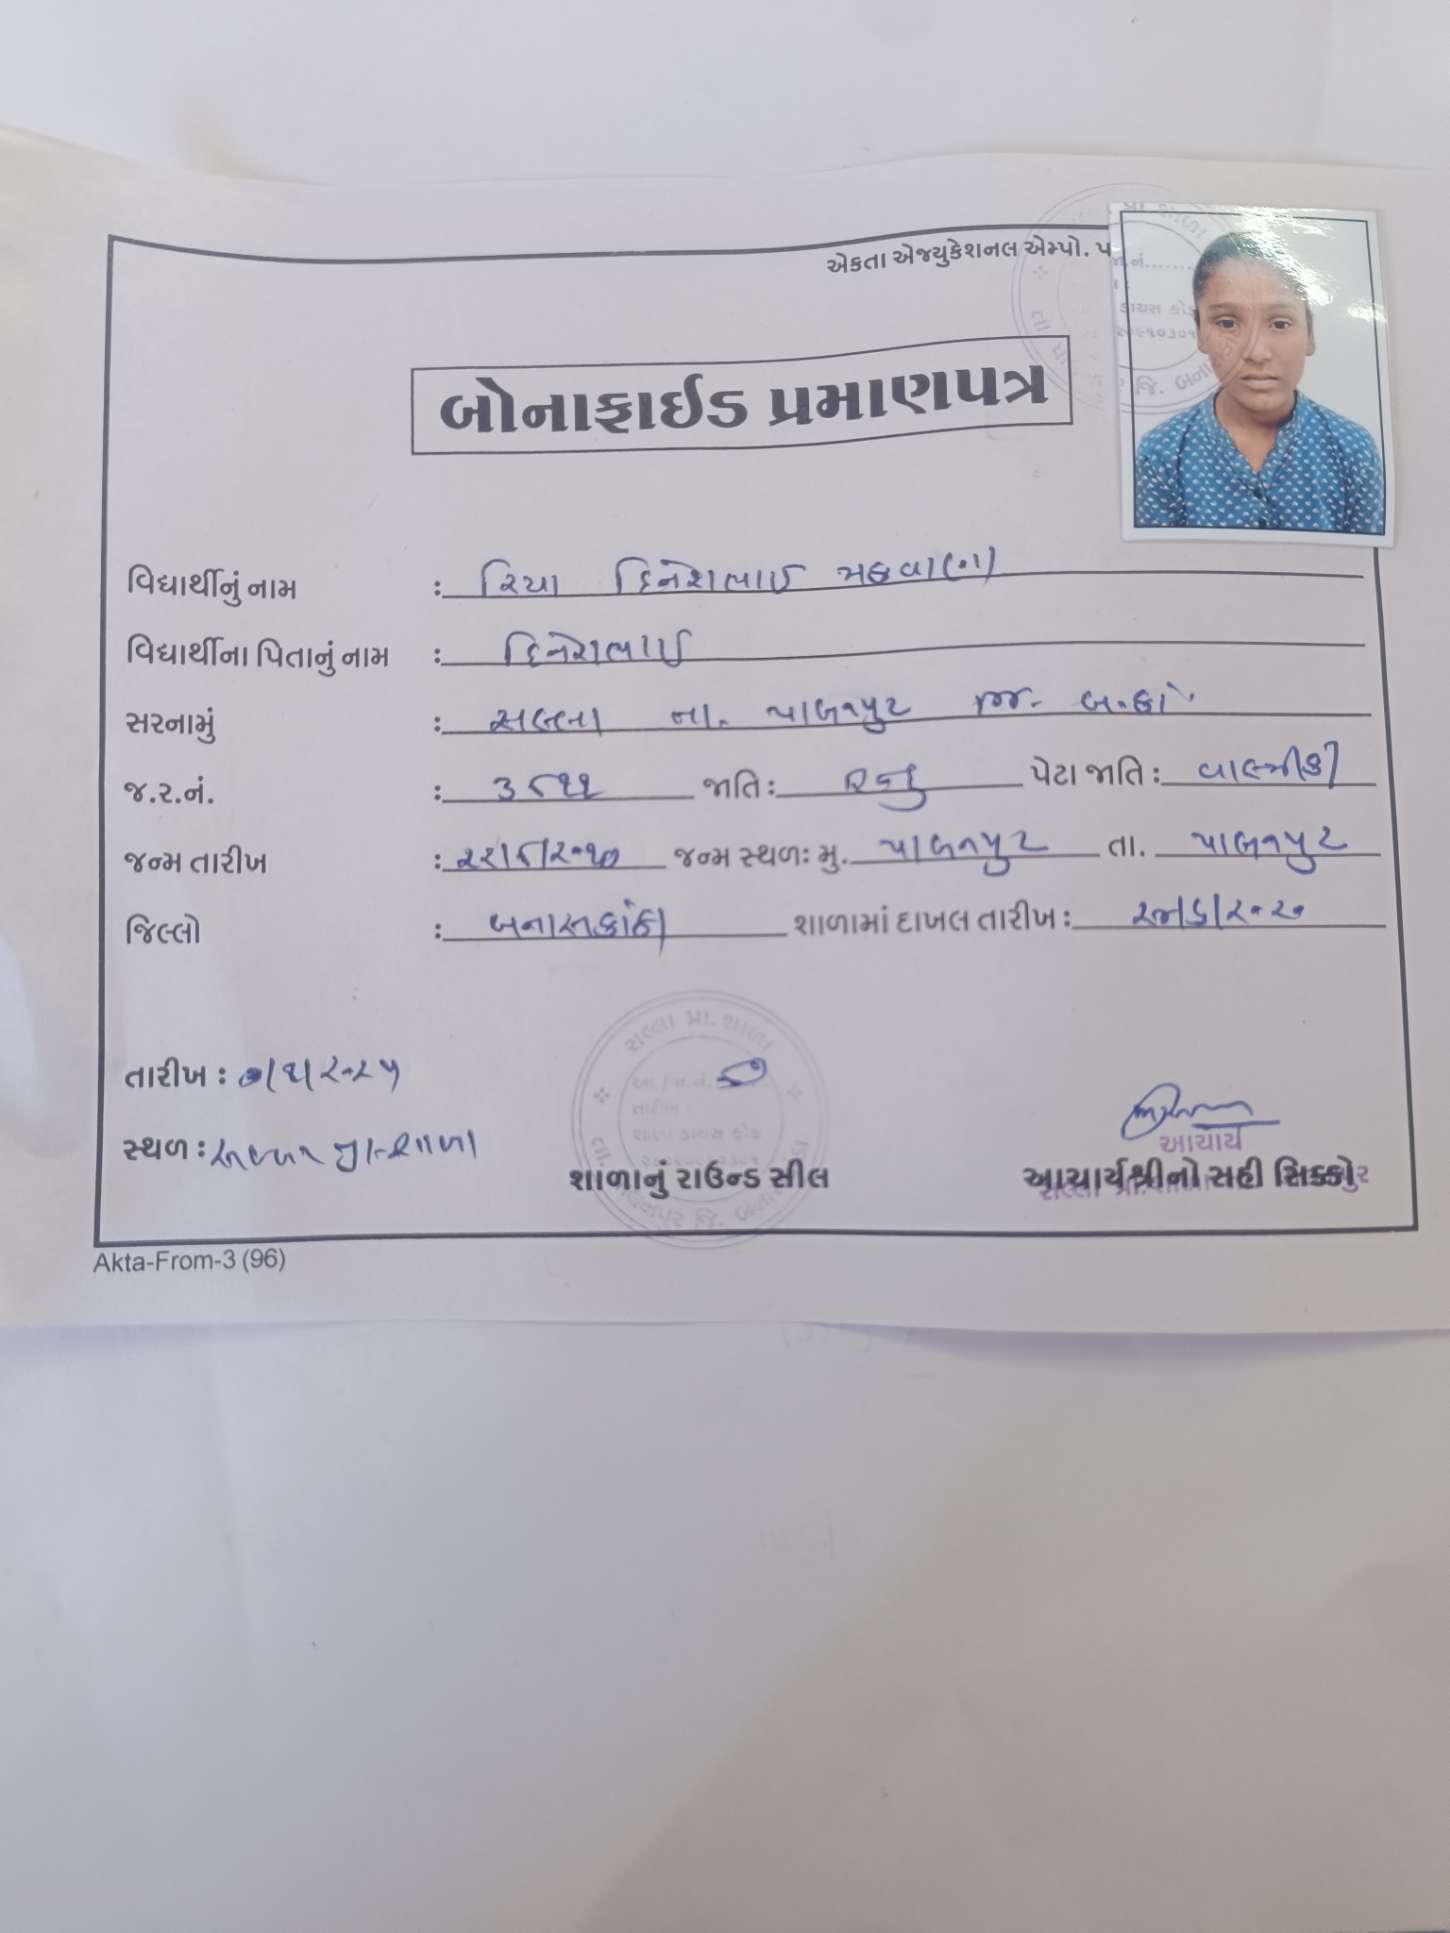 એકતા એજ્યુકેશનલ એમ્પો. પ
બોનાફાઈડ પ્રમાણપત્ર
વિદ્યાર્થીનું નામ : રિયા દિનેશભાઈ મકવાણા
વિદ્યાર્થીના પિતાનું નામ : દિનેશભાઈ
સરનામું : સલ્લા તા. પાલનપુર જી. બ.કાં
જ.ર.નં. : ૩૮૧૧ જાતિ : હિન્દુ પેટા જાતિ : વાલ્મીકી
જન્મ તારીખ : જન્મ સ્થળઃ મુ. પાલનપુર તા. પાલનપુર
જિલ્લો : બનાસકાંઠા શાળામાં દાખલ તારીખ :
તારીખ :
સ્થળ :
સલ્લા પ્રા. શાળા
તારીખ
શાળા ડાયસ કોડ
શાળાનું રાઉન્ડ સીલ
આચાર્ય
આચાર્યશ્રીનો સહી સિક્કો
Akta-From-3 (96)